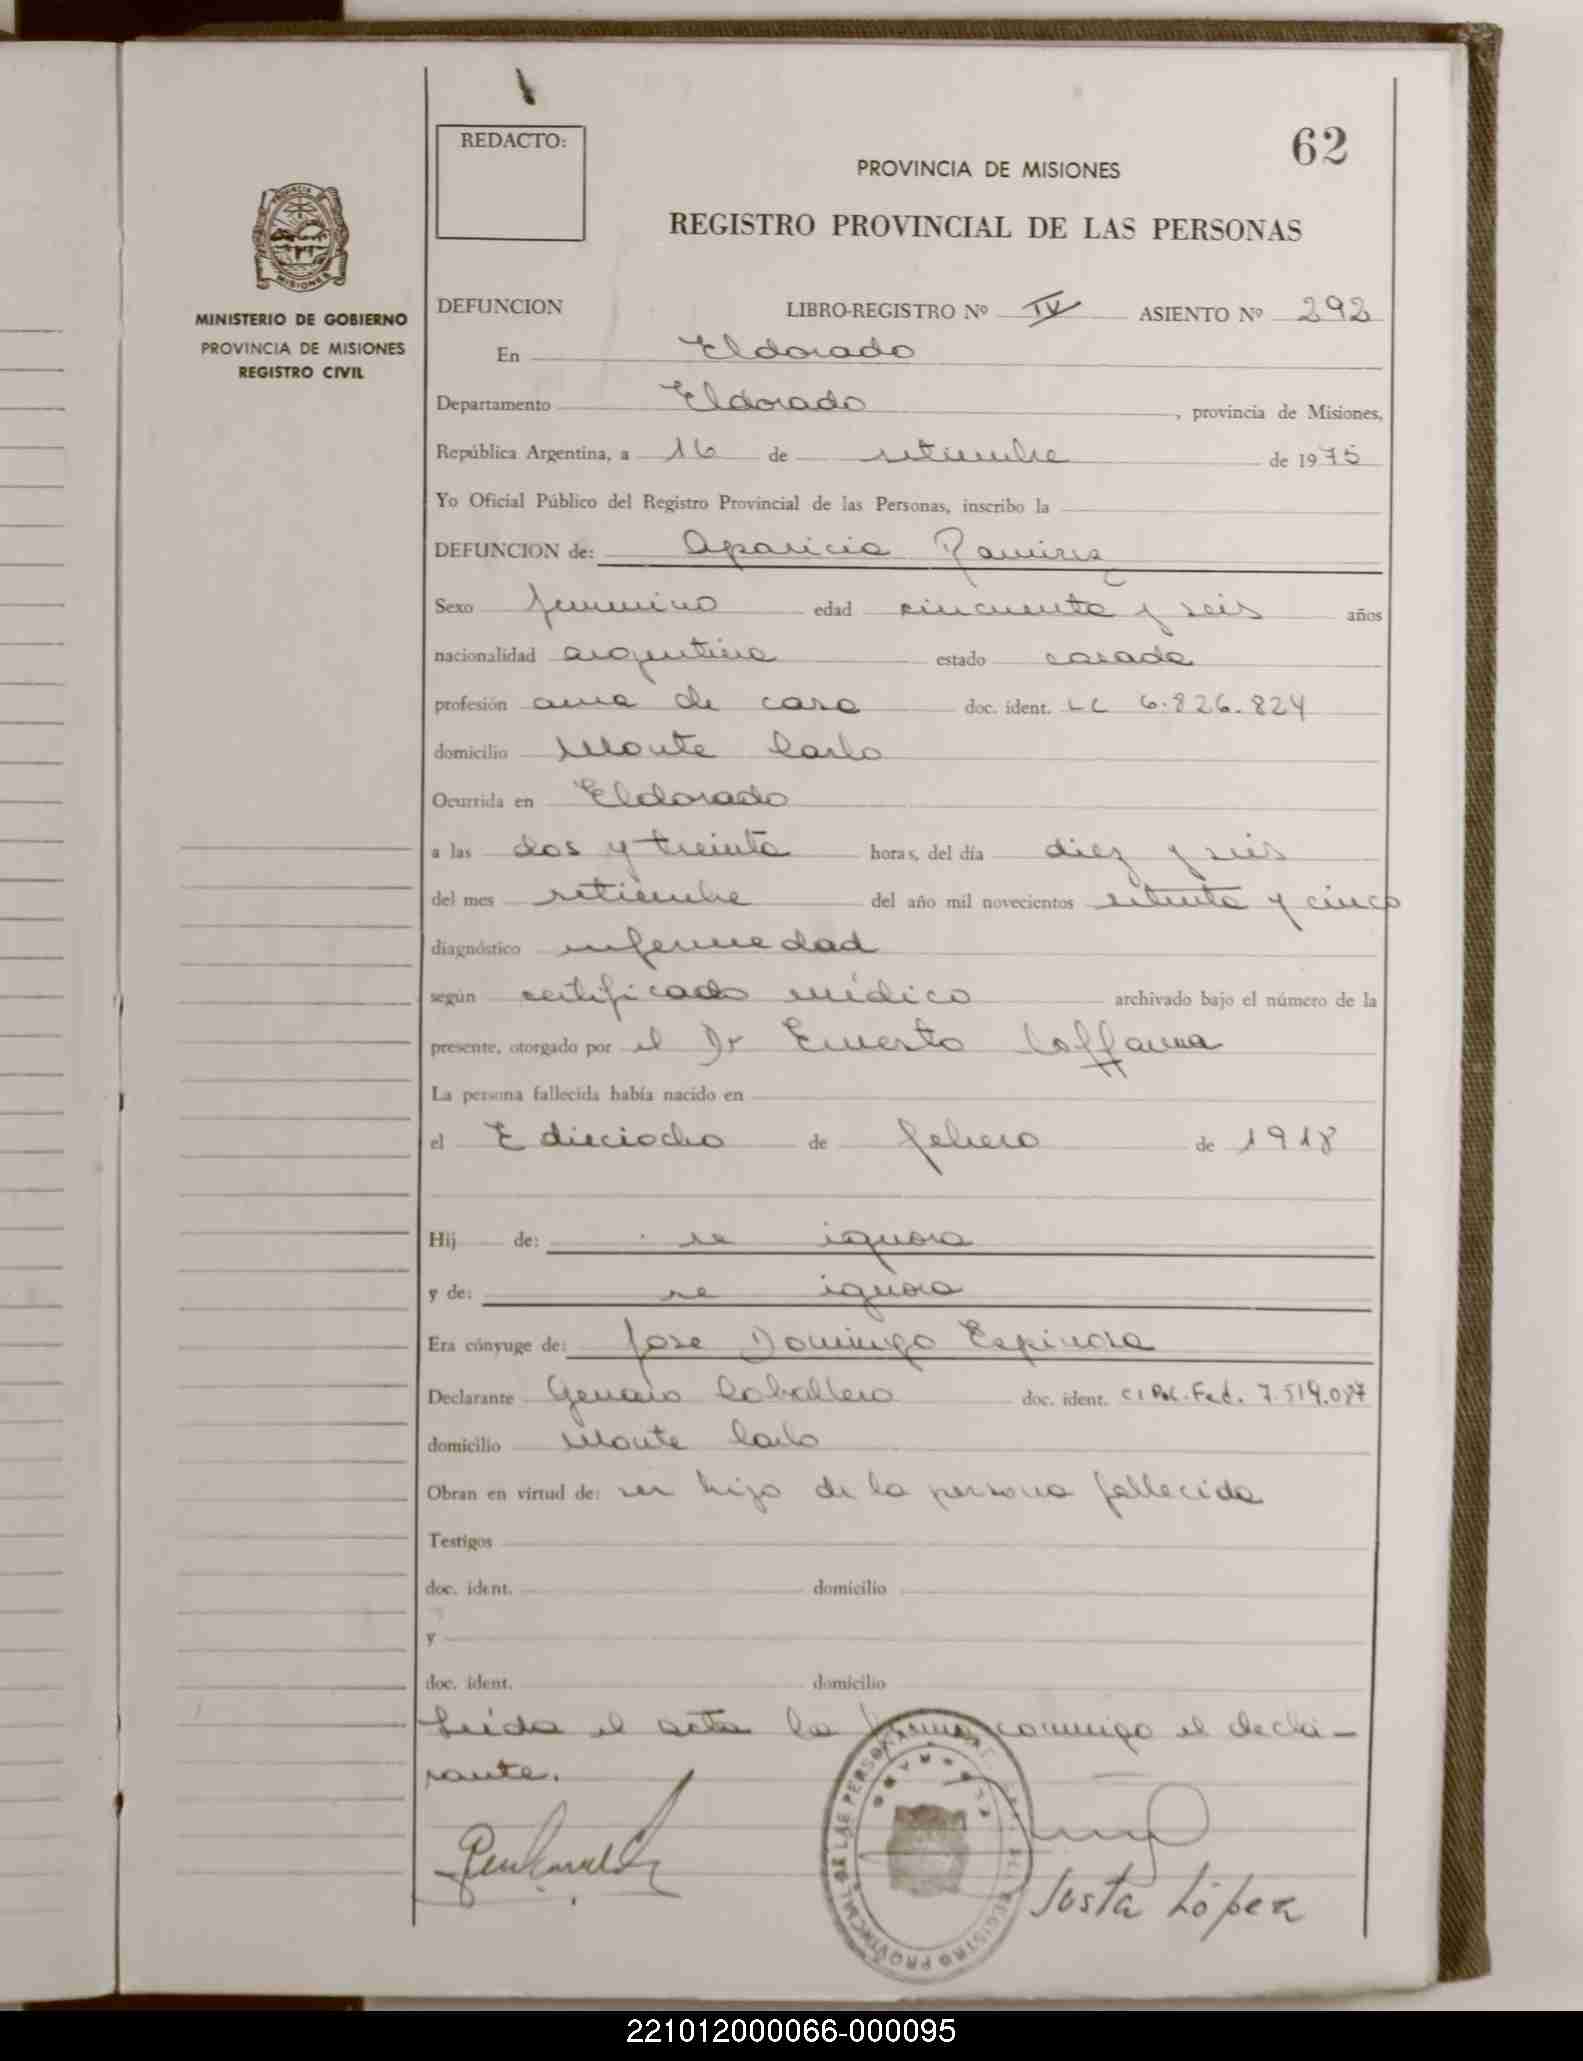 REDACTO:
62
PROVINCIA DE MISIONES
REGISTRO PROVINCIAL DE LAS PERSONAS
MINISTERIO DE GOBIERNO
PROVINCIA DE MISIONES
REGISTRO CIVIL
DEFUNCION LIBRO-REGISTRO Nº IV ASIENTO Nº 292
En Eldorado
Departamento Eldorado, provincia de Misiones,
República Argentina, a 16 de setiembre de 1975
Yo Oficial Público del Registro Provincial de las Personas, inscribo la
DEFUNCION de: Aparicia Ramirez
Sexo femenino edad cincuenta y seis años
nacionalidad argentina estado casada
profesión ama de casa doc. ident. LC 6.826.824
domicilio Monte Carlo
Ocurrida en Eldorado
a las dos y treinta horas, del día diez y seis
del mes setiembre del año mil novecientos setenta y cinco
diagnóstico enfermedad
según certificado médico archivado bajo el número de la
presente, otorgado por el Dr Ernesto
La persona fallecida había nacido en
el dieciocho de febrero de 1918
Hij de: se ignora
y de: se ignora
Era cónyuge de: Jose Domingo Espinosa
Declarante Genaro Caballero doc. ident. CI Pol. Fed. 7.519.087
domicilio Monte Carlo
Obran en virtud de: ser hijo de la persona fallecida
Testigos
doc. ident. domicilio
y
doc. ident. domicilio
Leída el acta la firma conmigo el decla-
rante.
Justa López
221012000066-000095